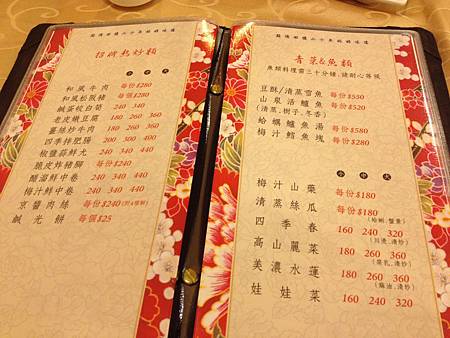 招牌熱炒類
小 中 大
和風牛肉 每份$280
和風松阪豬 每份$280
鹹蛋皎白筍 240 340
老皮嫩豆腐 180 260 360
薑絲炒牛肉 180 260 360
四季拌肥腸 200 300 400
椒鹽蒜鮮尤 240 340 440
脆皮炸豬腳 每份$240
醋溜鮮中卷 240 340 440
梅汁鮮中卷 240 340 440
京醬肉絲 每份$240(附4個餅)
鹹光餅 每個$25
青菜&魚類
魚類料理需三十分鐘，請耐心等候
豆酥/清蒸雪魚 每份$550
山泉活鱸魚 每份$520
(清蒸、樹子、冬香)
蛤蠣鱸魚湯 每份$580
梅汁鱈魚塊 每份$280
小 中 大
梅汁山藥 每份$180
清蒸絲瓜 每份$180
(蛤蜊.蟹黃)
四季春 160 240 320
(川燙.清炒)
高山麗菜 180 260 360
(腐乳.清炒)
美濃水蓮 180 260 360
(麻油.清炒)
娃娃菜 160 240 320